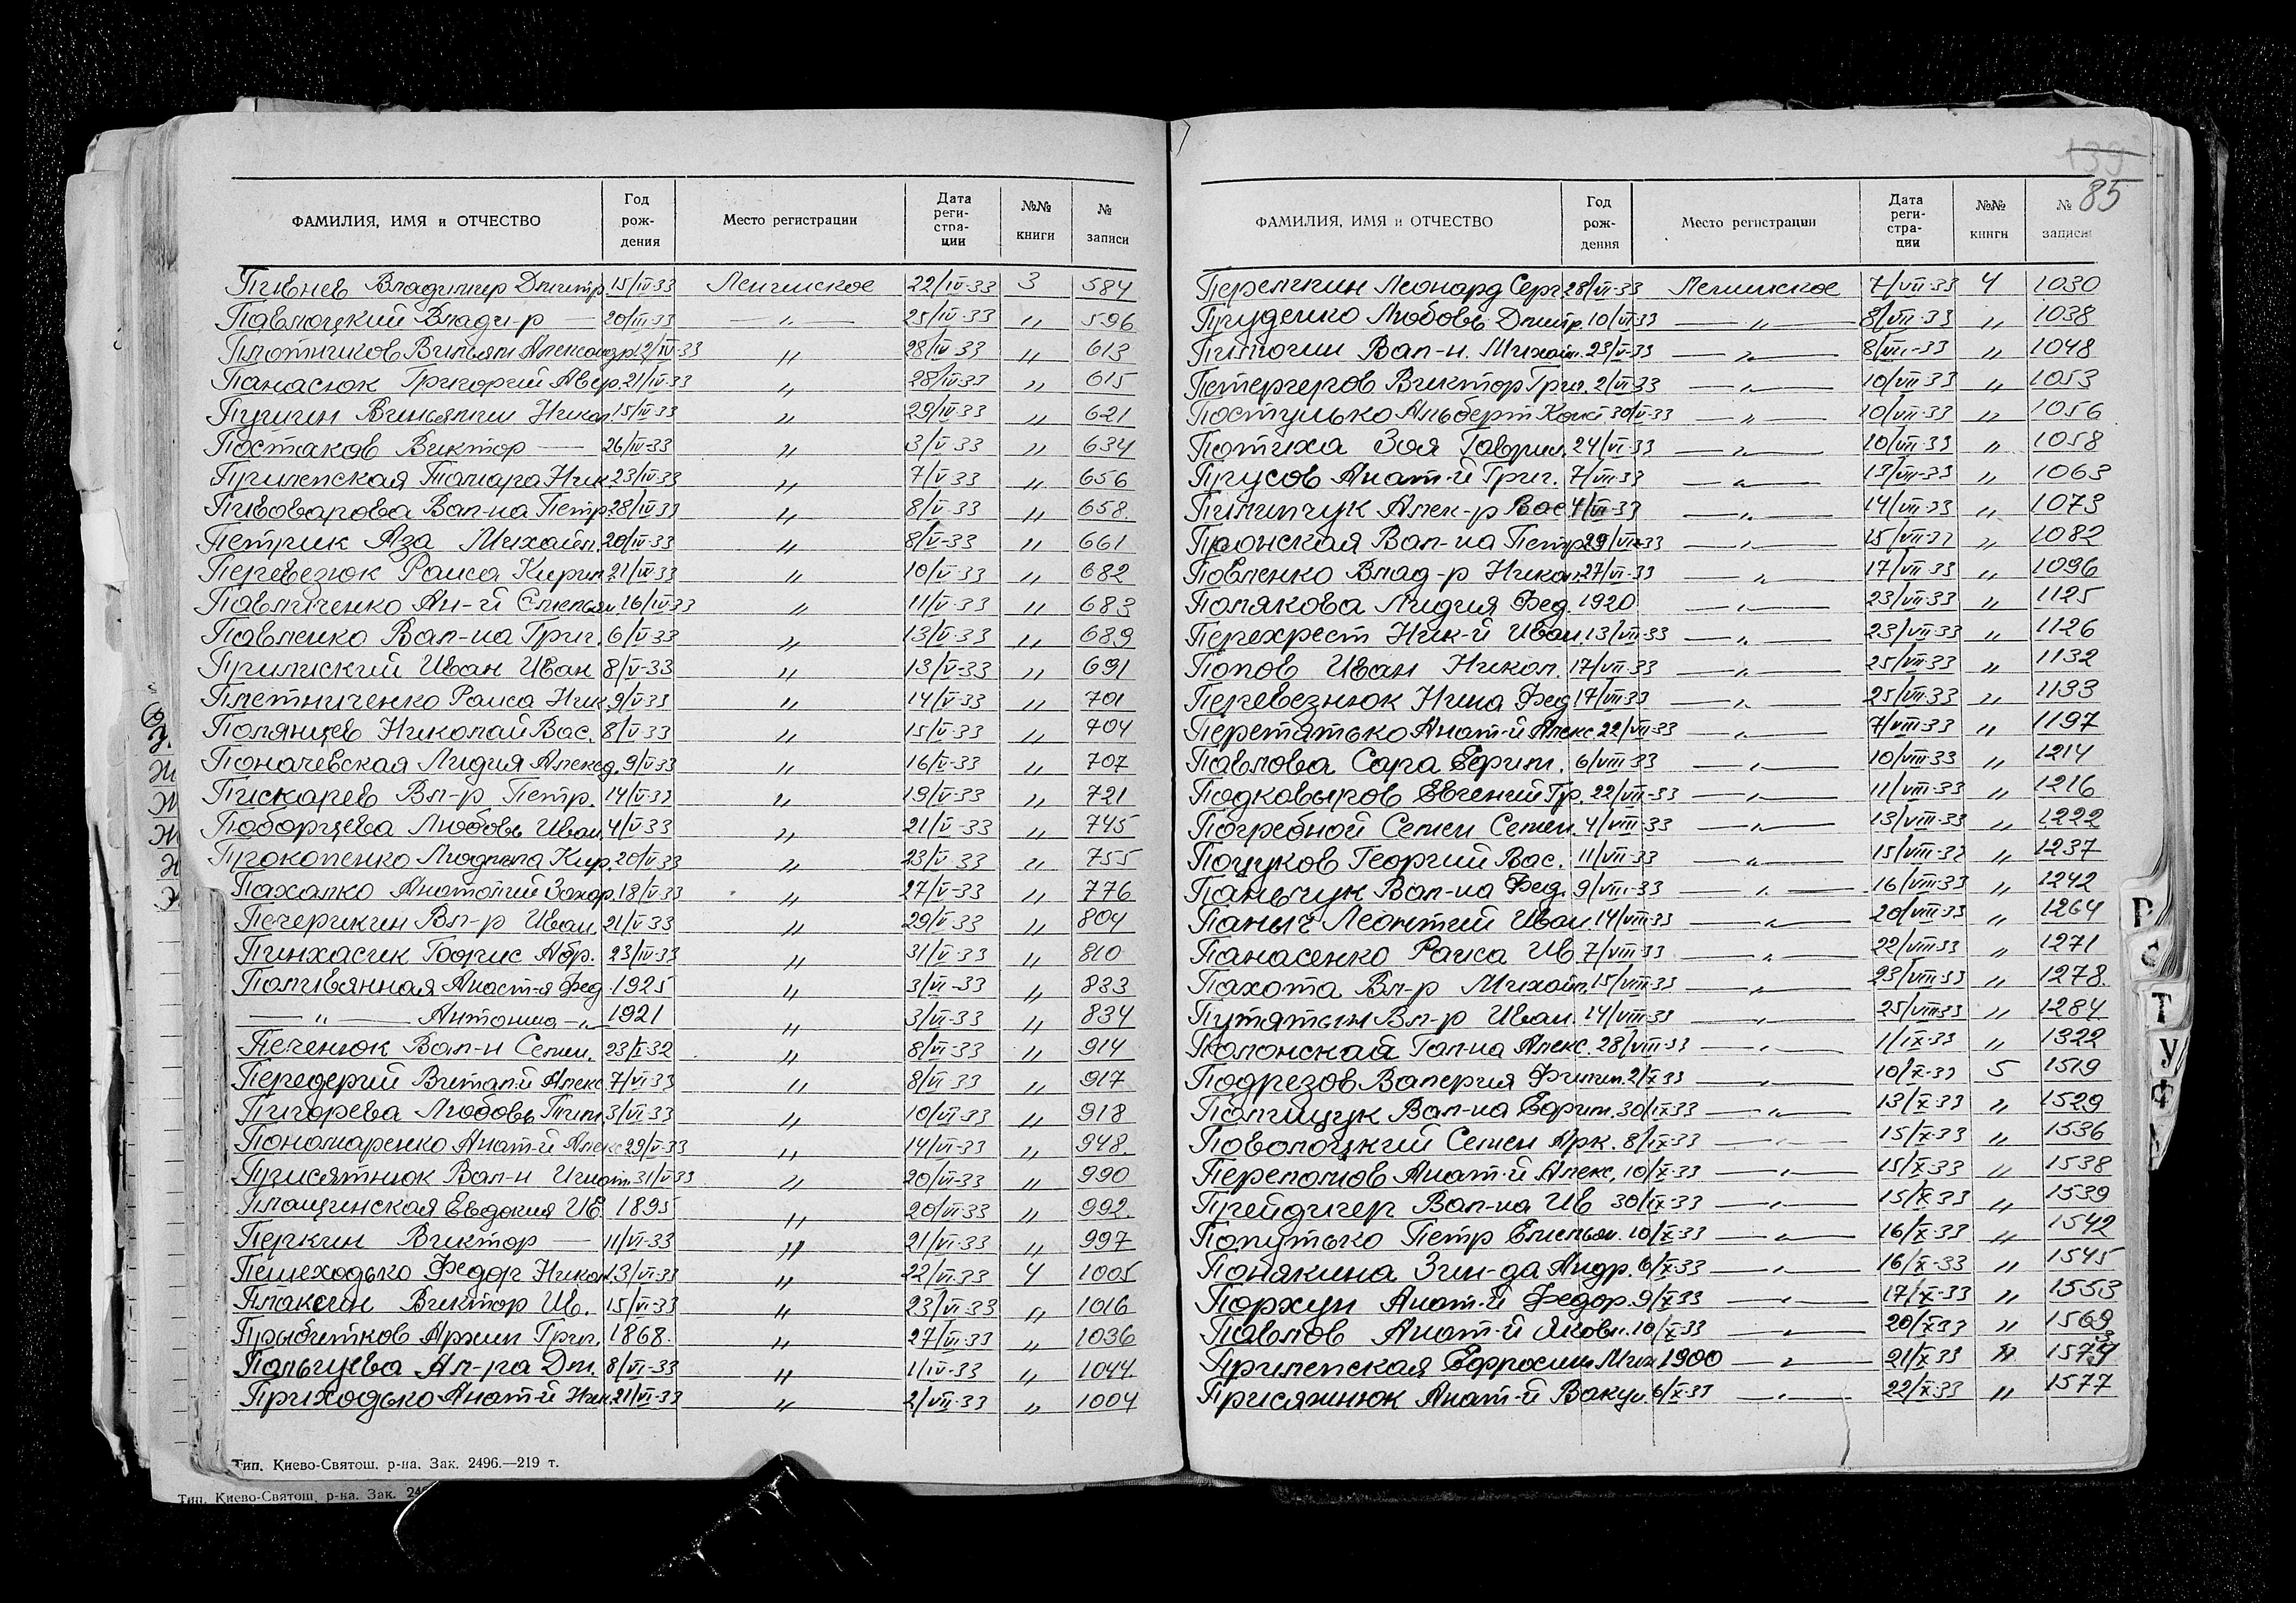 139
85
ФАМИЛИЯ, ИМЯ и ОТЧЕСТВО Год рождения Место регистрации Дата регистрации №№ книги № записи
Пивнев Владимир Дмитр. 15/IV-33 Ленинское 22/IV-33 3 584
Павлоцкий Влади-р — 20/III-33 — " — 25/IV-33 " 596
Плотников Вильям Александр. 12/IV-33 " 28/IV-33 " 613
Панасюк Григорий Авер. 21/IV-33 " 28/IV-33 " 615
Пугин Виньямин Никол. 15/IV-33 " 29/IV-33 " 621
Постаков Виктор — 26/IV-33 " 3/V-33 " 634
Прилепская Тамара Ник. 23/IV-33 " 7/V-33 " 656
Пивоварова Вал-на Петр. 28/IV-33 " 8/V-33 " 658.
Петрик Аза Михайл. 20/IV-33 " 8/V-33 " 661
Перевезюк Раиса Кирил. 21/IV-33 " 10/V-33 " 682
Павличенко Ан-й Емельян. 16/IV-33 " 11/V-33 " 683
Павленко Вал-на Григ. 6/V-33 " 13/V-33 " 689
Прилиский Иван Иван. 8/V-33 " 13/V-33 " 691
Плетниченко Раиса Ник. 9/V-33 " 14/V-33 " 701
Полянцев Николай Вас. 8/V-33 " 15/V-33 " 704
Поначевская Лидия Алексд. 9/V-33 " 16/V-33 " 707
Пискарев Вл-р Петр. 14/V-33 " 19/V-33 " 721
Поборцева Любовь Иван. 4/V-33 " 21/V-33 " 745
Прокопенко Людмила Кир. 20/V-33 " 23/V-33 " 755
Пахалко Анатолий Захар. 18/V-33 " 27/V-33 " 776
Печерикин Вл-р Иван. 21/V-33 " 29/V-33 " 804
Пинхасик Борис Абр. 23/IV-33 " 31/V-33 " 810
Поливянная Анаст-я Фед. 1925 " 3/VI-33 " 833
— " — Антонина — " 1921 " 3/VI-33 " 834
Печенюк Вал-н Семен. 23/X-32 " 8/VI-33 " 914
Передерий Витал-й Алекс. 7/VI-33 " 8/VI-33 " 917
Пигорева Любовь Тим. 3/VI-33 " 10/VI-33 " 918
Пономаренко Анат-й Алекс. 29/V-33 " 14/VI-33 " 948.
Присятнюк Вал-н Игнат. 31/V-33 " 20/VI-33 " 990
Плащинская Евдокия Ив. 1895 " 20/VI-33 " 992
Перкин Виктор — 11/VI-33 " 21/VI-33 " 997
Пешеходько Федор Никол. 13/VI-33 " 22/VI-33 4 1005
Плаксин Виктор Ив. 15/VI-33 " 23/VI-33 " 1016
Прыбитков Архип Григ. 1868. " 27/VI-33 " 1036
Польгуева Ал-ра Дм. 8/VI-33 " 1/IV-33 " 1044
Приходько Анат-й Ник. 21/VI-33 " 2/VII-33 " 1004
Тип. Киево-Святош. р-на. Зак. 2496.—219 т.
Тип. Киево-Святош. р-на. Зак.
ФАМИЛИЯ, ИМЯ и ОТЧЕСТВО Год рождения Место регистрации Дата регистрации №№ книги № записи
Перелкин Леонард Серг. 28/VI-33 Ленинское 7/VII-33 4 1030
Пруденко Любовь Дмитр. 10/VI-33 — " — 8/VII-33 " 1038
Пимогин Вал-н. Михайл. 23/V-33 — " — 8/VII-33 " 1048
Петергеров Виктор Григ. 2/VI-33 — " — 10/VII-33 " 1053
Постулько Альберт Конст. 30/V-33 — " — 10/VII-33 " 1056
Потиха Зоя Гаврил. 24/VI-33 — " — 10/VII-33 " 1058
Прусов Анат-й Григ. 7/VII-33 — " — 13/VII-33 " 1063
Пилипчук Алек-р Вас. 4/VII-33 — " — 14/VII-33 " 1073
Пронская Вал-на Петр. 29/VI-33 — " — 15/VII-33 " 1082
Павленко Влад-р Никол. 27/VI-33 — " — 17/VII-33 " 1096
Полякова Лидия Фед. 1920 — " — 23/VII-33 " 1125
Перехрест Ник-й Иван. 13/VII-33 — " — 23/VII-33 " 1126
Попов Иван Никол. 17/VII-33 — " — 25/VII-33 " 1132
Перевезнюк Нина Фед. 17/VII-33 — " — 25/VII-33 " 1133
Перетятько Анат-й Алекс. 22/VII-33 — " — 7/VIII-33 " 1197
Павлова Сара Ефрим. 6/VIII-33 — " — 10/VIII-33 " 1214
Подковыров Евгений Гр. 22/VII-33 — " — 11/VIII-33 " 1216
Погребной Семен Семен. 4/VIII-33 — " — 13/VIII-33 " 1222
Поцуков Георгий Вас. 11/VII-33 — " — 15/VIII-33 " 1237
Паньчук Вал-на Фед. 9/VIII-33 — " — 16/VIII-33 " 1242
Паныч Леонтий Иван. 14/VIII-33 — " — 20/VIII-33 " 1264
Панасенко Раиса Ив. 7/VIII-33 — " — 22/VIII-33 " 1271
Пахота Вл-р Михайл. 15/VIII-33 — " — 23/VIII-33 " 1278.
Путятын Вл-р Иван. 14/VIII-33 — " — 25/VIII-33 " 1284
Полонская Гал-на Алекс. 28/VIII-33 — " — 1/IX-33 " 1322
Подрезов Валерия Филип. 2/X-33 — " — 10/X-33 5 1519
Полищук Вал-на Ефрим. 30/IX-33 — " — 13/X-33 " 1529
Поволоцкий Семен Арк. 8/IX-33 — " — 15/X-33 " 1536
Переломов Анат-й Алекс. 10/X-33 — " — 15/X-33 " 1538
Прейдигер Вал-на Ив 30/IX-33 — " — 15/X-33 " 1539
Попутько Петр Емельян. 10/X-33 — " — 16/X-33 " 1542
Понякина Зин-да Андр. 6/X-33 — " — 16/X-33 " 1545
Порхун Анат-й Федор. 9/X-33 — " — 17/X-33 " 1553
Павлов Анат-й Яковл. 10/X-33 — " — 20/X-33 " 1569
Прилепская Ефросиния Мих. 1900 — " — 21/X-33 "
Присяжнюк Анат-й Вакул. 6/X-33 — " — 22/X-33 " 1577
Р
С
Т
У
Ф